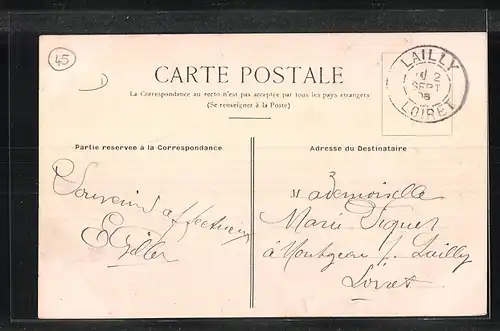 45
LAILLY
2
SEPT
LOIRET
CARTE POSTALE
La Correspondance au recto n'est pas acceptée par tous les pays étrangers
(Se renseigner à la Poste)
Partie réservée à la Correspondance
Adresse du Destinataire
Souvenir affectueux
Mademoiselle
Marie
à Lailly
Loiret